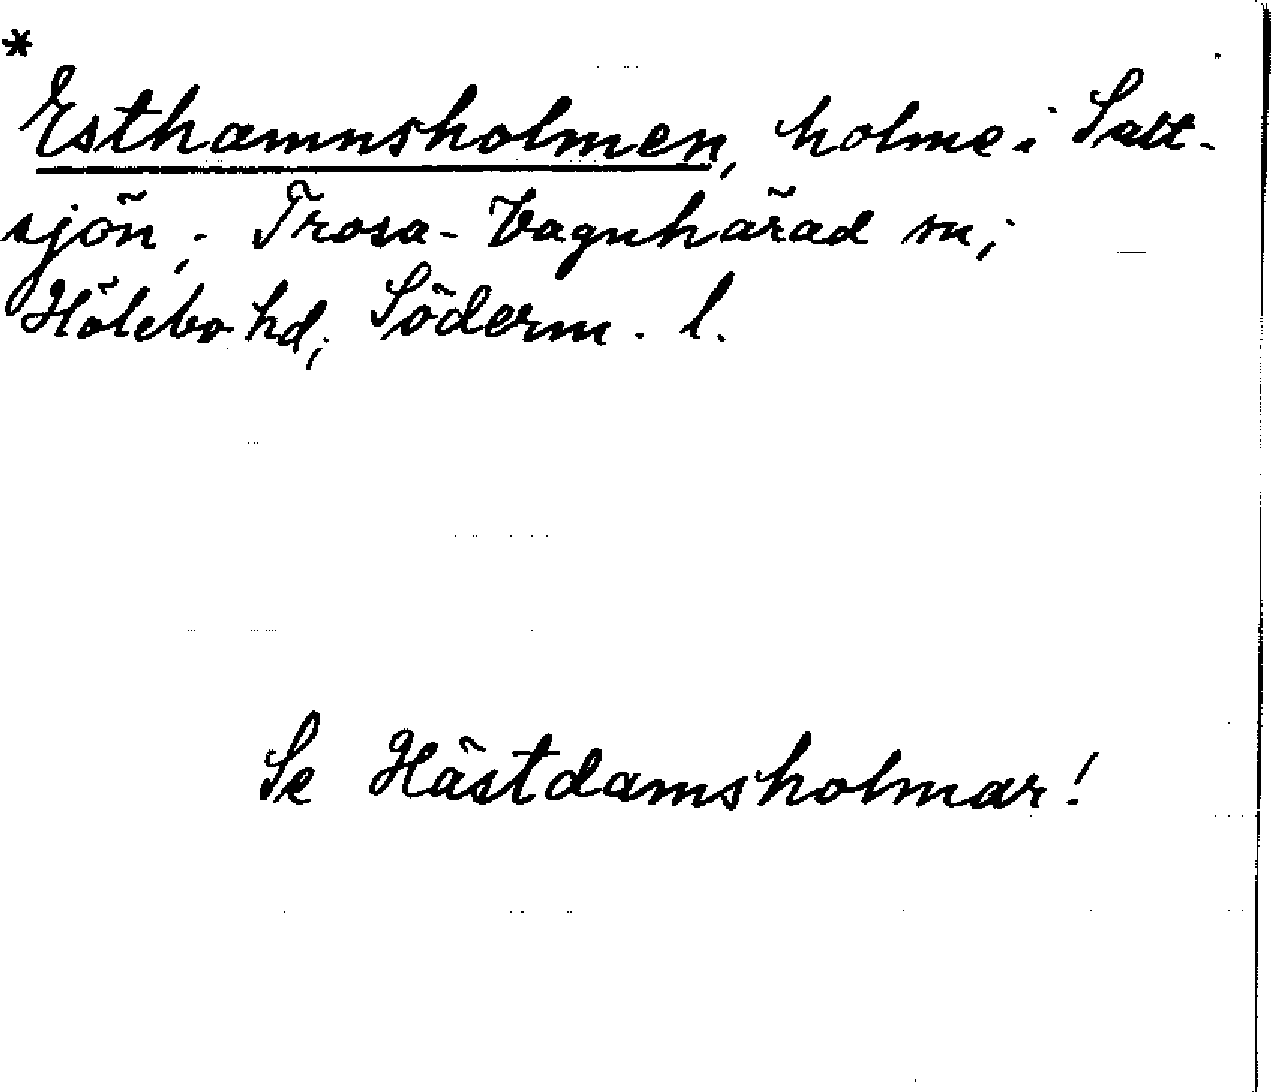 *
Esthamnsholmen, holme i Salt-
sjön; Trosa-Vagnhärad sn;
Hölebo hd; Söderm. l.
Se Hästdamsholmar!